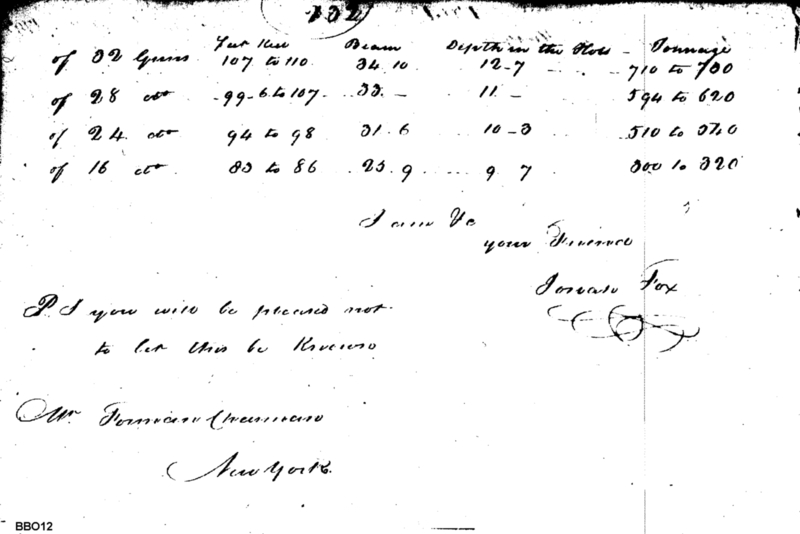 132
Feet Keel Beam Depth in the Hold - Tonnage
of 32 Guns 107 to 110 34.10 12-7 710 to 730
of 28 do 99-6 to 107 33.- 11- 594 to 620
of 24 do 94 to 98 31.6 10-3 510 to 540
of 16 do 83 to 86 25.9 9 7 300 to 320
I am &c
your Friend
Josiah Fox
P.S you will be pleased not
to let this be Known
Mr Forman Cheeman
New York.
BBO12